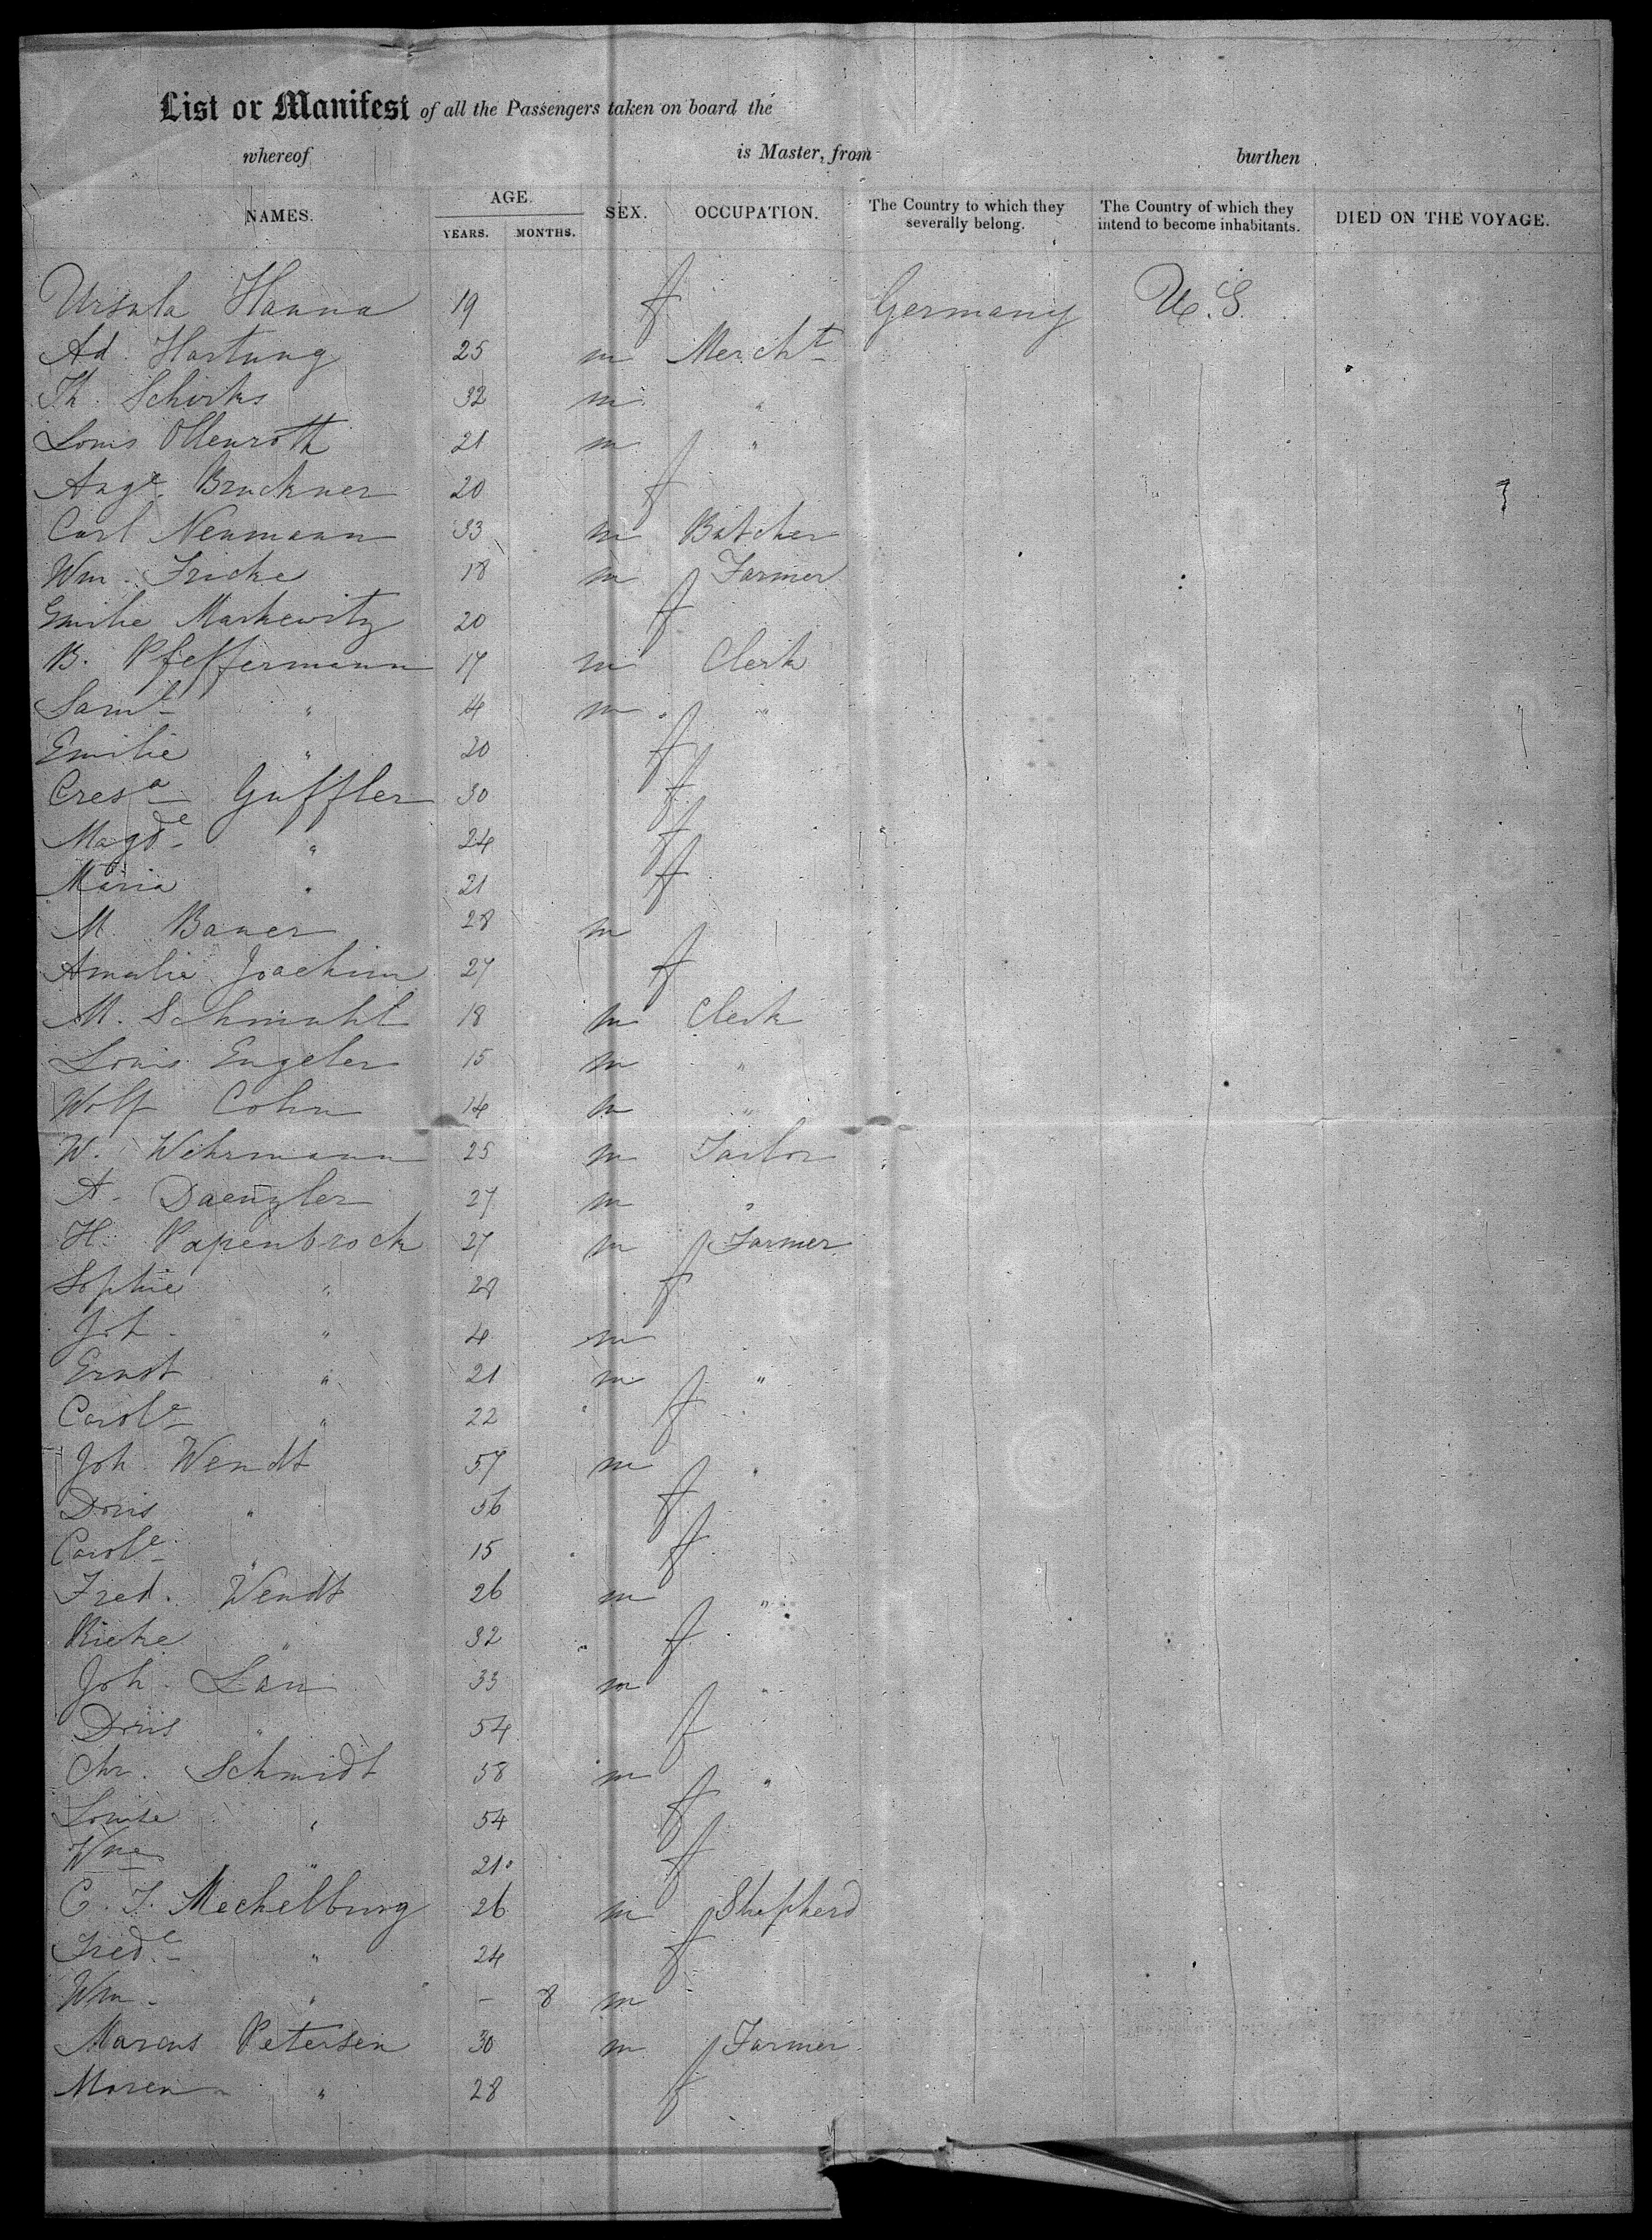 List or Manifest of all the Passengers taken on board the
whereof is Master, from burthen
NAMES. AGE. YEARS. MONTHS. SEX. OCCUPATION. The Country to which they severally belong. The Country of which they intend to become inhabitants. DIED ON THE VOYAGE.
Ursula Hanna 19 f Germany U.S.
Ad. Hartung 25 m Mercht
Th. 32 m "
Louis Ollenroth 21 m "
Auge. Bruckner 20 f
Carl Neumann 33 m Butcher
Wm. Fricke 18 m Farmer
Emilie Markewitz 20 f
B. Pfeffermann 17 m Clerk
Saml " 14 m "
Emilie " 20 f
Cresa Guffler 30 f
Magde " 24 f
Maria " 21 f
M. Bauer 28 m
Amalie Joachim 27 f
M. Schmahl 18 m Clerk
Louis Engeler 15 m "
Wolf Cohn 14 m "
W. Wehrmann 25 m Tailor
A. Daenzler 27 m "
H. Papenbrock 27 m Farmer
Sophie " 28 f
Joh. " 4 m
Ernst " 21 m "
Carole " 22 f
Joh. Wendt 57 m "
Doris " 56 f
Carole " 15 f
Fred. Wendt 26 m "
Rieke " 32 f
Joh. Lau 33 m "
Doris " 54 f
Chr. Schmidt 58 m "
Louise " 54 f
Wne " 21 f
C. F. Mechelburg 26 m Shepherd
Frede " 24 f
Wm. " - 8 m
Marcus Petersen 30 m Farmer
Maren " 28 f